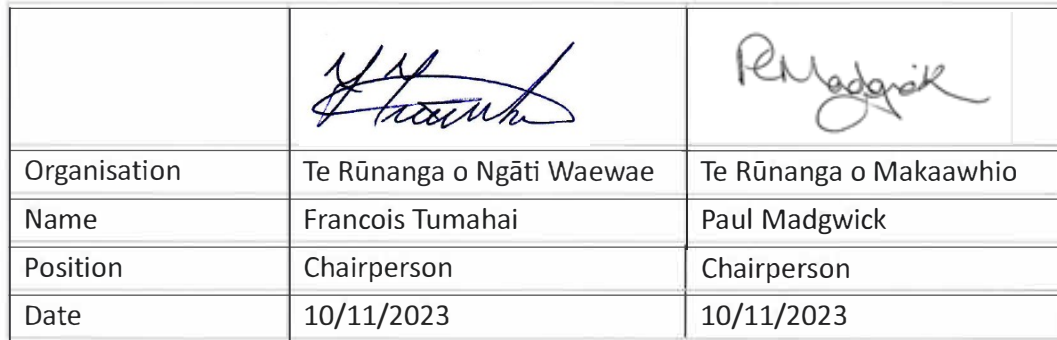 PMadgwick
Organisation Te Rūnanga o Ngāti Waewae Te Rūnanga o Makaawhio
Name Francois Tumahai Paul Madgwick
Position Chairperson Chairperson
Date 10/11/2023 10/11/2023